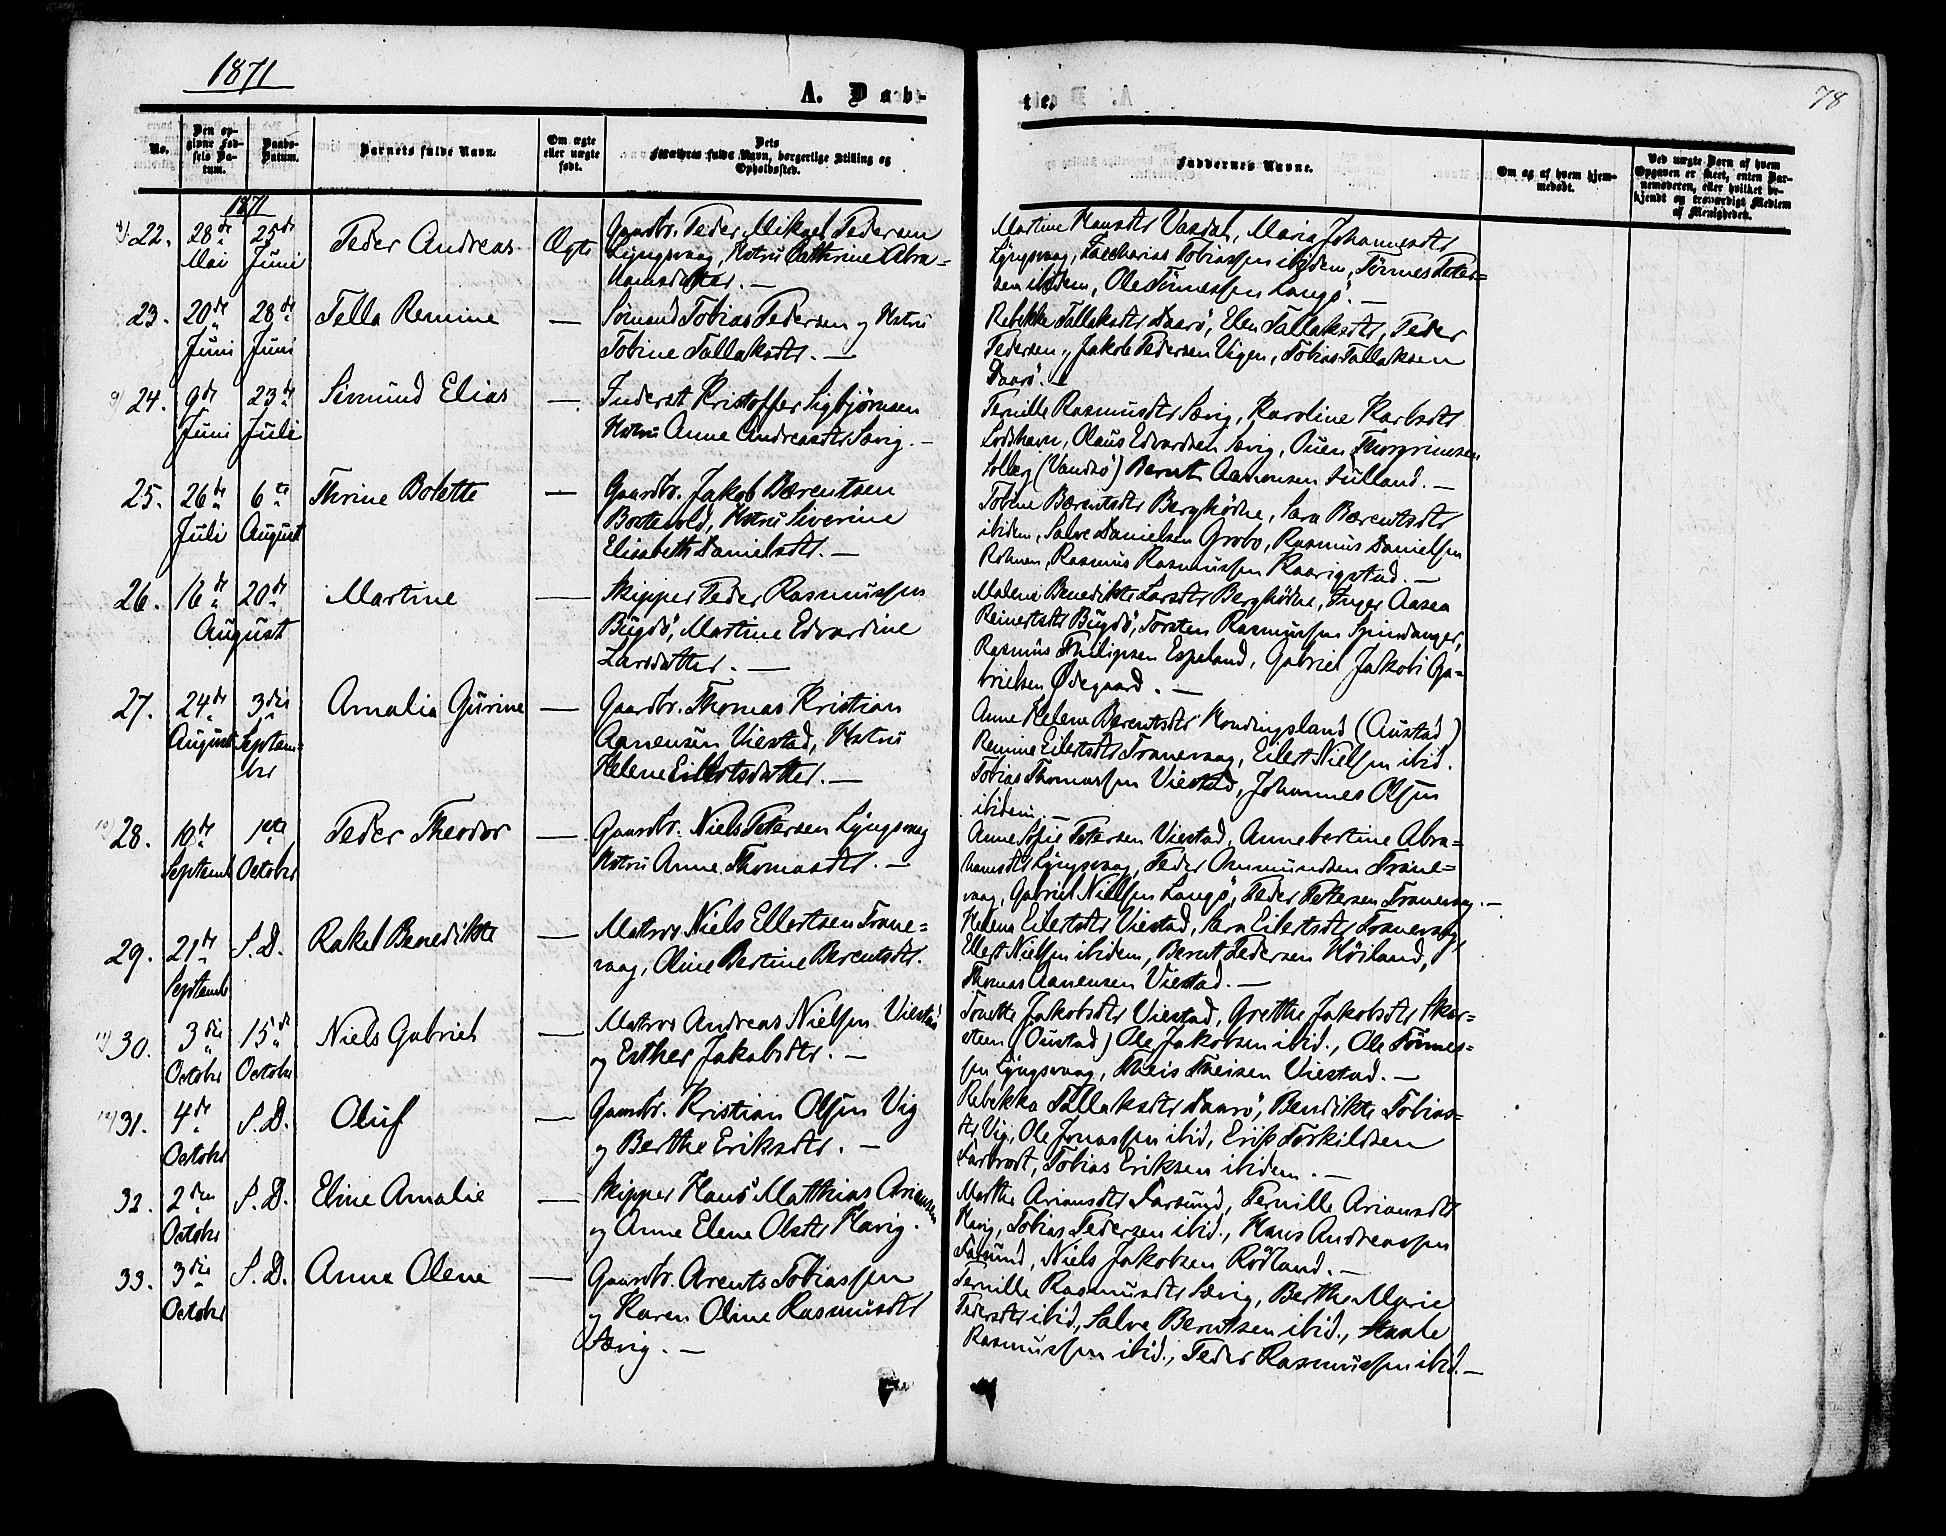 1871
A. Dab-
te.
78
No.
Den op-
givne Fød-
sels Da-
tum.
Daabs-
Datum.
Barnets fulde Navn.
Om ægte
eller uægte
født.
Forældres fulde Navn, borgerlige Stilling og
Opholdssted.
Faddernes Navne.
Om og af hvem hjem-
medøbt.
Ved uægte Børn af hvem
Opgaven er skeet, enten Bar-
nemoderen, eller hvilket be-
kjendt og troværdigt Medlem
af Menigheden.
1871
22. 28de Mai
25de Juni
Peder Andreas
Ægte
Gaardbr. Peder Mikael Pedersen
Lyngsvaag, Hstru Cathrine Abra-
hamsdatter. —
Martine Hansdtr Vasdal, Maria Johannesdtr
Lyngsvaag, Zacharias Tobiassen ibidem, Tønnes Peter-
sen ibidem, Ole Tønnessen Langø. —
23. 20de Juni
28de Juni
Talla Remine
—
Sømand Tobias Pedersen og Hstru
Tobine Tallaksdtr. —
Rebekke Tallaksdtr Daarø, Elen Tallaksdtr, Peder
Pedersen, Jakob Pedersen Vigen, Tobias Tallaksen
Daarø. —
24. 9de Juni
23de Juli
Simund Elias
—
Inderst Kristoffer Sigbjørnsen
Hstru Anne Andreasdtr Sævig. —
Pernille Rasmusdtr Sævig, Karoline Karlsdtr
Lodshavn, Olaus Edvardsen Sævig, Ouen Thorgrimsen
Solberg (Vandsø) Bernt Aanensen Hulland. —
25. 26de Juli
6te August
Thrine Bolette
—
Gaardbr. Jakob Bærentsen
Bortevold, Hstru Siverine
Elisabeth Danielsdtr. —
Tobine Bærentsdtr Berghødne, Sara Bærentsdtr
ibidem, Salve Danielsen Grobo, Rasmus Danielsen
Röinen, Rasmus Rasmussen Kaarigstad. —
26. 16de
20de
August
Martine
—
Skipper Peder Rasmussen
Bugdö, Martine Edvardine
Larsdatter. —
Malene Benedikte Larsdtr Berghødne, Inger Aasea
Reinertsdtr Bugdö, Torsten Rasmussen Spindanger,
Rasmus Philipsen Espeland, Gabriel Jakob Ga-
brielsen Ødegaard. —
27. 24de August
3die Septem-
ber
Amalia Gurine
—
Gaardbr. Thomas Kristian
Aanensen Viestad, Hstru
Helene Eilertsdatter. —
Anne Helene Berentsdtr Hondingsland (Austad)
Remine Eilertsdtr Franevaag, Eilert Nielsen ibid.
Tobias Thomassen Viestad, Johannes Olsen
ibidem. —
28. 10de Septemb
1ste October
Peder Theodor
—
Gaardbr. Niels Petersen Lyngsvaag
Hstru Anne Thomasdtr. —
Anne Sofie Petersen Viestad, Annebertine Abra-
hamsdtr Lyngsvaag, Peder Ommundsen Frane-
vaag, Gabriel Nielsen Langø, Peder Pettersen Franevaag. —
29. 21de Septemb
S. D.
Rakel Benedikte
—
Matros Niels Ellertsen Frane-
vaag, Oline Bertine Berentsdtr.
Helene Eilertsdtr Viestad, Sara Eilertsdtr Franevaag,
Ellert Nielsen ibidem, Bernt Pedersen Höiland,
Thomas Aanensen Viestad. —
30. 3die October
15de October
Niels Gabriel
—
Matros Andreas Nielsen Viestad
og Esther Jakobsdtr. —
Tonette Jakobsdtr Viestad, Grethe Jakobsdtr Skar-
steen (Oustad) Ole Jakobsen ibid., Ole Tönnes-
sen Lyngsvaag, Theis Theisen Viestad. —
31. 4de October
S. D.
Oluf
—
Gaardbr. Kristian Olsen Vig
og Berthe Eriksdtr. —
Rebekka Tallaksdtr Daarø, Bendikte Tobias-
dtr Vig, Ole Jonassen ibid, Erik Torkildsen
Farbrodt, Tobias Eriksen ibidem. —
32. 2den October
S. D.
Eline Amalie
—
Skipper Hans Matthias Ariansen
og Anne Elene Olsdtr Havig.
Marthe Ariansdtr Farsund, Pernille Ariansdtr
Havig, Tobias Pedersen ibid., Hans Andreassen
Farsund, Niels Jakobsen Rödland. —
33. 3die October
S. D.
Anne Olene
—
Gaardbr. Arents Tobiassen
og Karen Oline Rasmusdtr
Sævig. —
Pernille Rasmusdtr Sævig, Berthe Marie
Pedersdtr ibid., Salve Berntsen ibid.,
Rasmussen ibid., Peder Rasmussen ibid. —